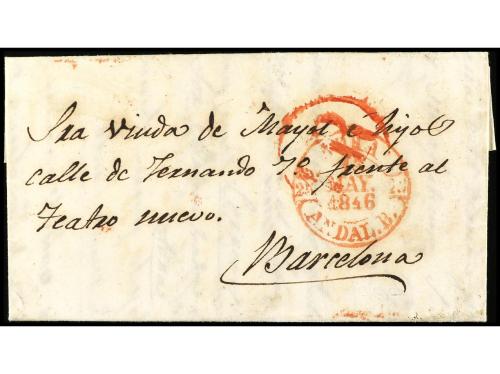 Sra Viuda de Mayol e hijo
calle de Fernando 7º frente al
Teatro nuevo.
Barcelona
MAY.
1846
ANDAL. B.